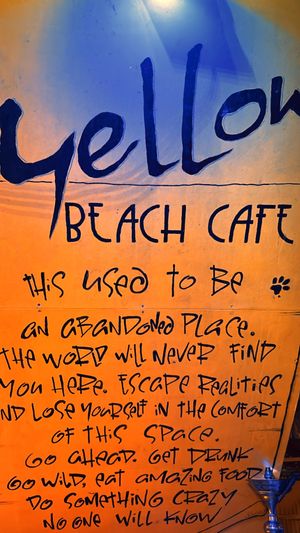 yellow
BEACH CAFE
THIS USED TO BE
AN ABANDONED PLACE.
THE WORD WILL NEVER FIND
YOU HERE. ESCAPE REALITIES
ND LOSE YOURSELF IN THE COMFORT
OF THIS SPACE.
GO AHEAD. GET DRUNK
GO WILD, EAT AMAZING FOOD
DO SOMETHING CRAZY
NO ONE WILL KNOW